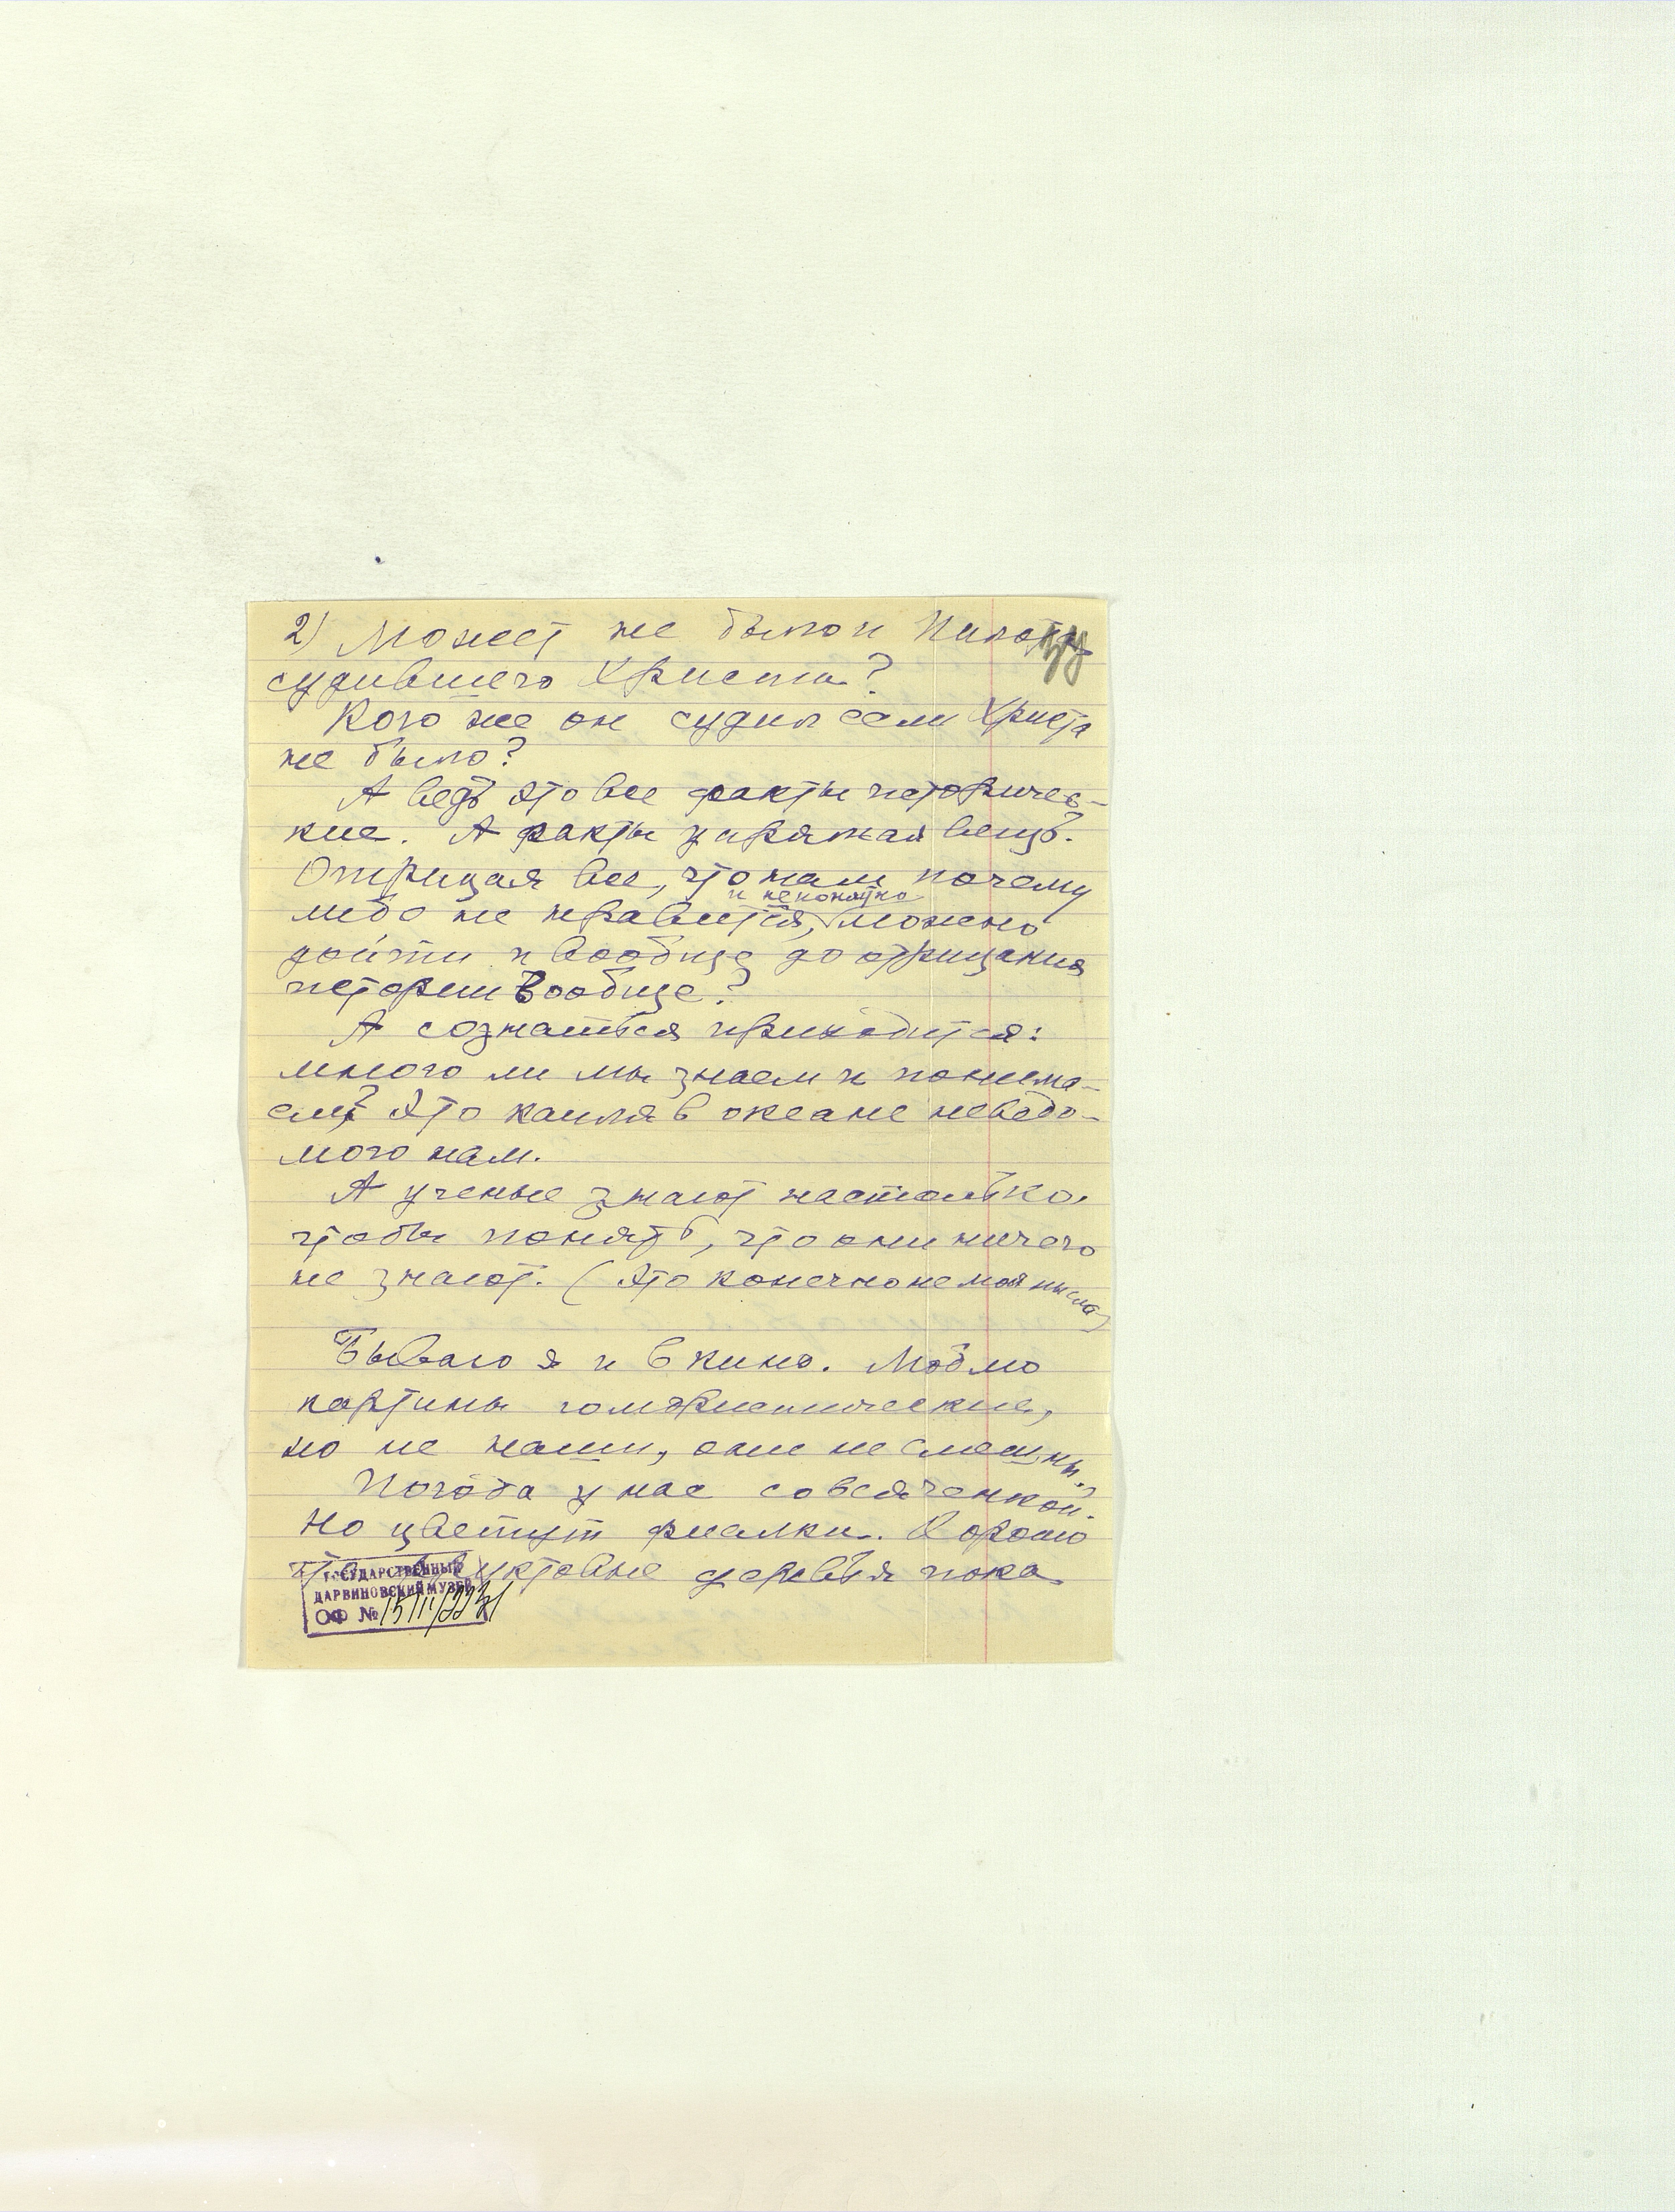 2) Может не было и Пилата
судившего Христа?
Кого же он судил если Христа
не было?
А ведь это все факты историчес-
кие. А факты упрямая вещь.
Отрицая все, что нам почему
и непонятно
либо не нравится, можно
дойти и вообще до отрицания
истории вообще?
А сознаться приходится:
много ли мы знаем и понима-
ем? Это капля в океане неведо-
мого нам.
А ученые знают настолько,
чтобы понять, что они ничего
не знают. (Это конечно не моя мысль)
Бываю я и в кино. Люблю
картины юмористические,
но не наши, они не смешны.
Погода у нас со всячинкой.
Но цветут фиалки. Хорошо
фруктовые деревья пока
ГОСУДАРСТВЕННЫЙ
ДАРВИНОВСКИЙ МУЗЕЙ
ОФ №